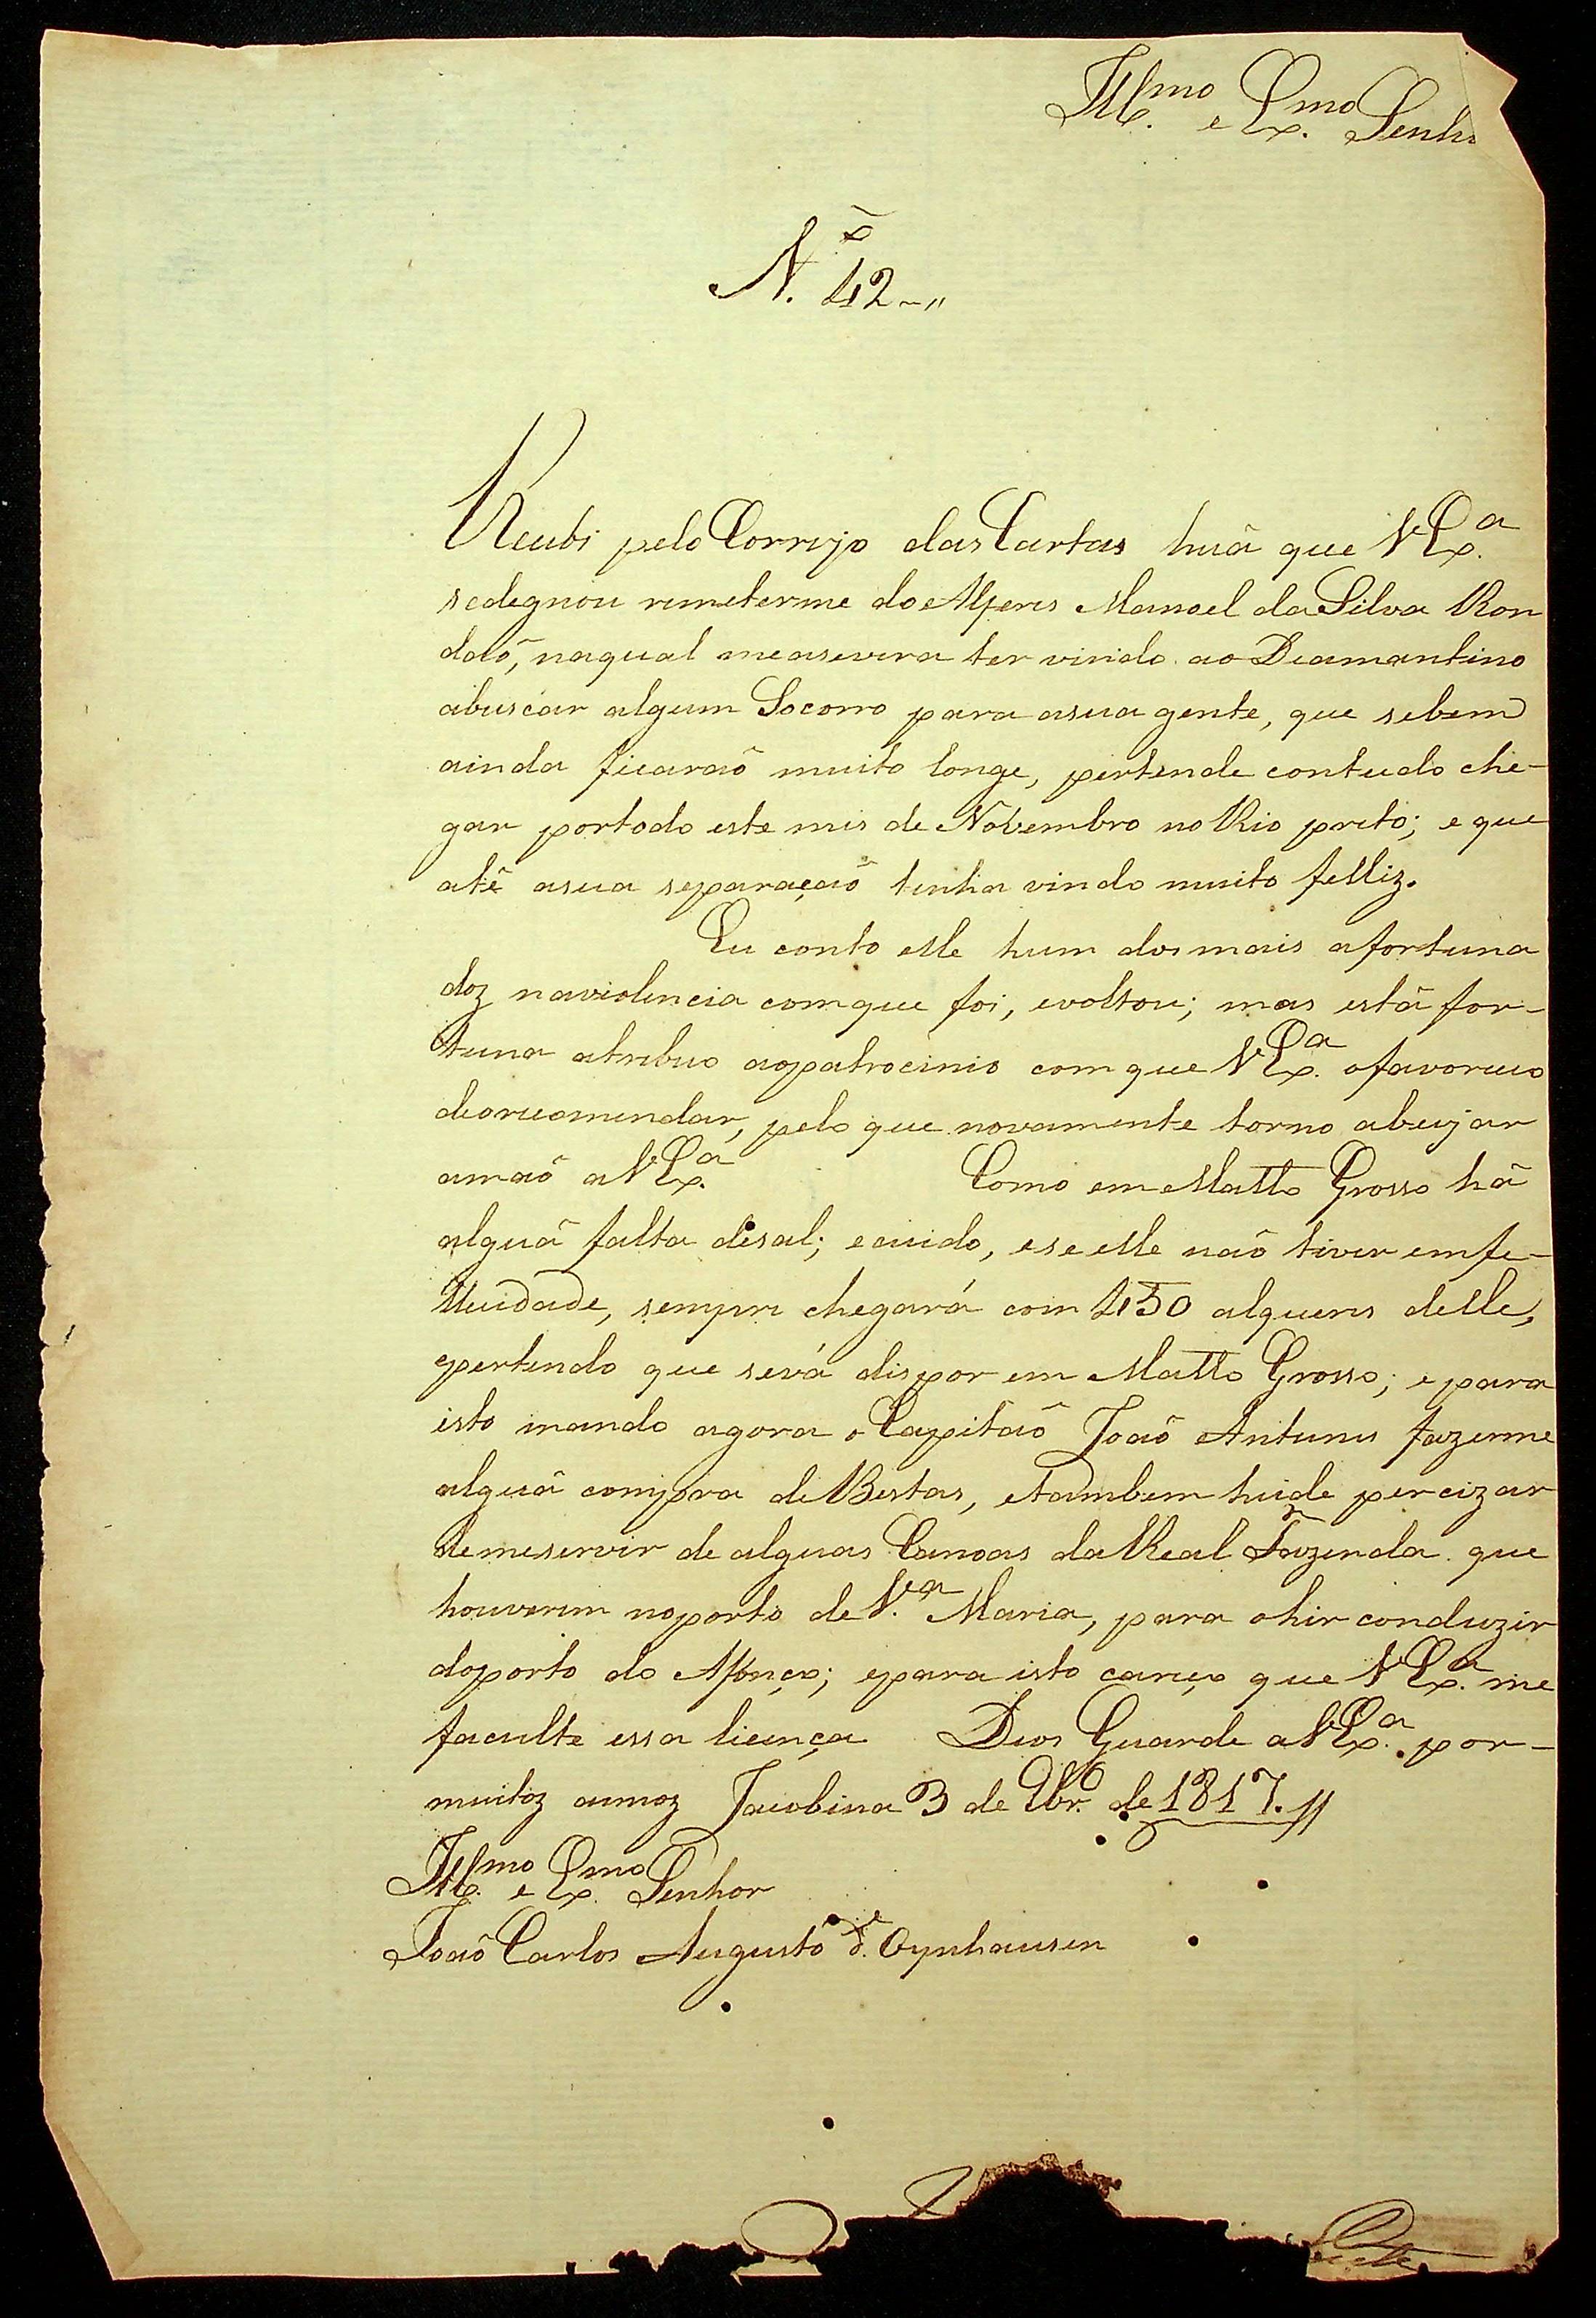 Ill.mo e Ex.mo Senho
N. 42
Recebi pelo Correyo das Cartas huã que V Ex.a
sedegnou remeterme do Alferes Manoel da Silva Ron
daõ, naqual measevera ter vindo ao Deamantino
abuscar algum Socorro para asua gente, que sebem
ainda ficaraõ muito longe, pertende contudo che-
gar portodo este mes de Novembro no Rio preto; e que
atê asua separaçaõ tinha vindo muito felliz.
Eu conto elle hum dos mais afortuna
doz naviolencia comque foi, evoltou; mas estâ for-
tuna atribuo aopatrocinio com que V Ex.a ofavoreceo
deorecomendar, pelo que novamente torno abeijar
amaõ a V Ex.a Como em Matto Grosso hâ
alguã falta desal; ecuido, ese elle naõ tiver emfe-
llicidade, sempre chegará com 450 alqueres delle,
epertendo que sevá dispor em Matto Grosso; e para
isto mando agora o Capitaõ Joaõ Antunes fazerme
alguã compra de Bestas, etambem heide percizar
demeservir de alguas Canoas da Real Fazenda que
houverem noporto de V.a Maria, para ohir conduzir
doporto do Afonço; epara isto careço que V Ex.a me
faculte essa licença Deos Guarde a V Ex.a por-
muitoz annoz Jacobina 3 de 9br.o de 1817.
Ill.mo e Ex.mo Senhor
Joaõ Carlos Augusto d'e Oynhausen